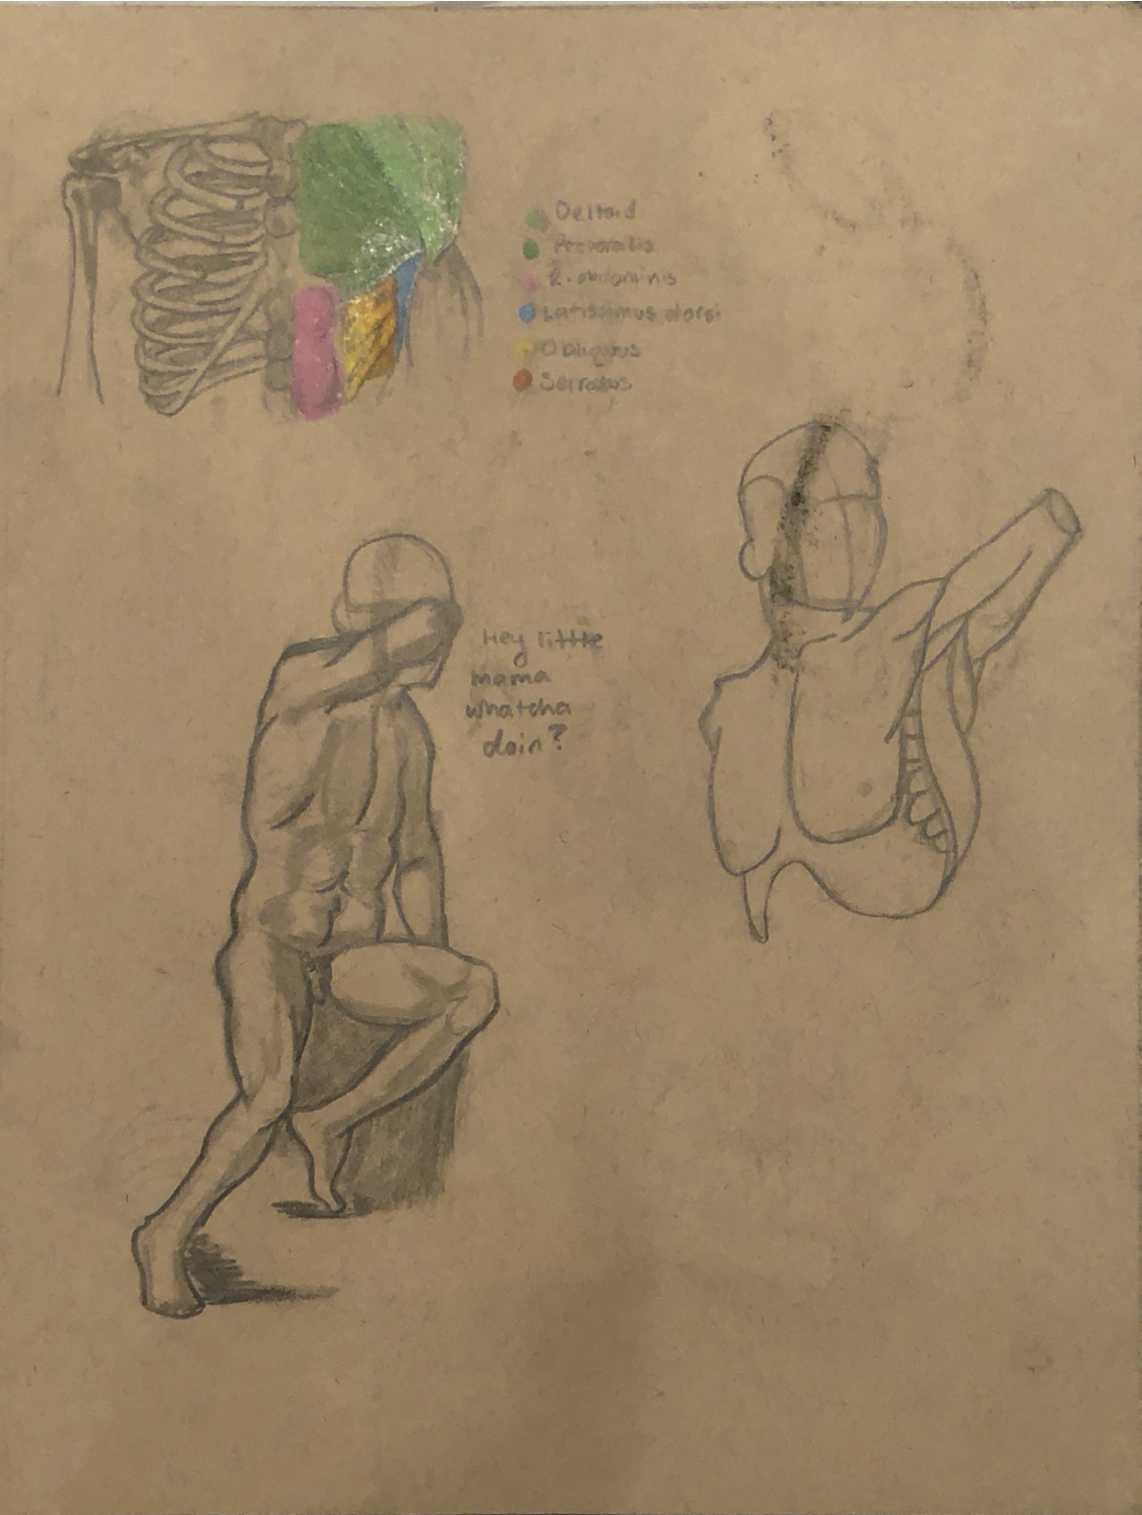 Deltoid
Pectoralis
R. abdominis
Latissimus dorsi
Obliques
Serratus
Hey little
mama
whatcha
doin?